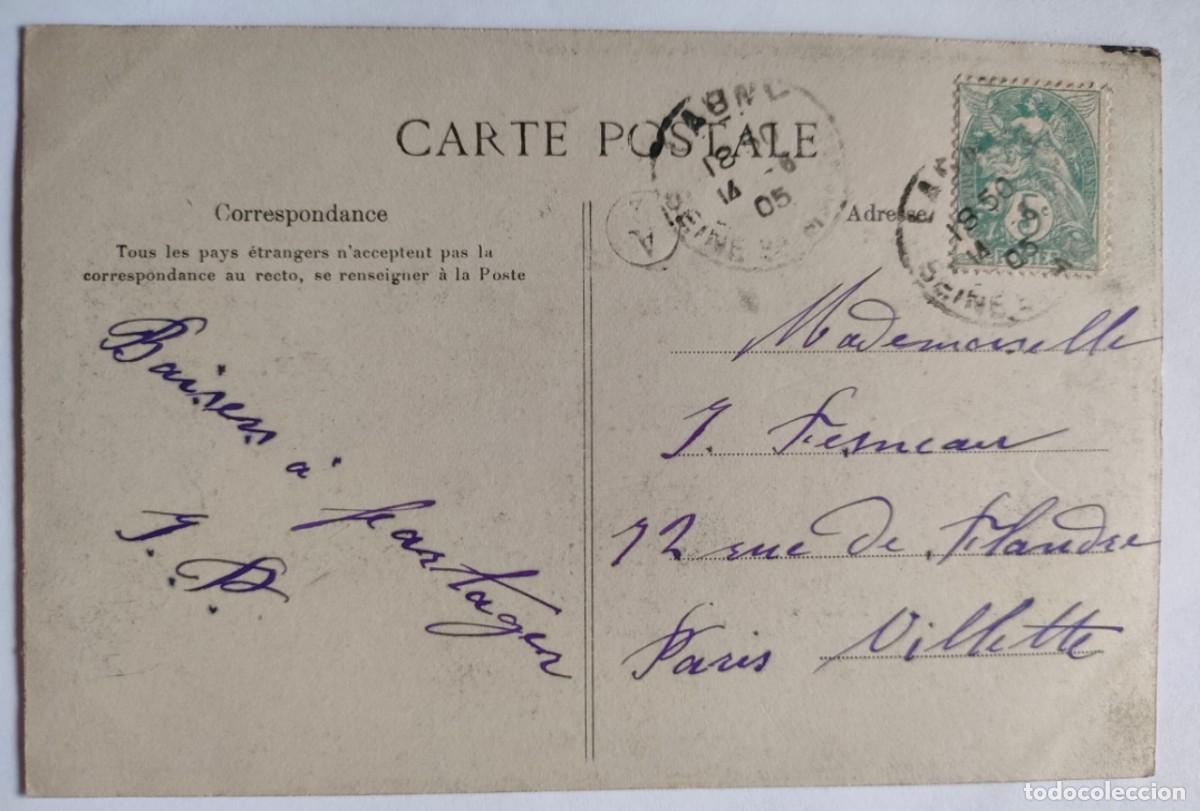 CARTE POSTALE
Correspondance
Tous les pays étrangers n'acceptent pas la
correspondance au recto, se renseigner à la Poste
Baisers à partager
J. P.
Adresse
Mademoiselle
J. Fesneau
72 rue de Flandre
Paris Villette
18
14 -6
05
SEINE
A
18 50
14
05
SEINE
5c
todocoleccion